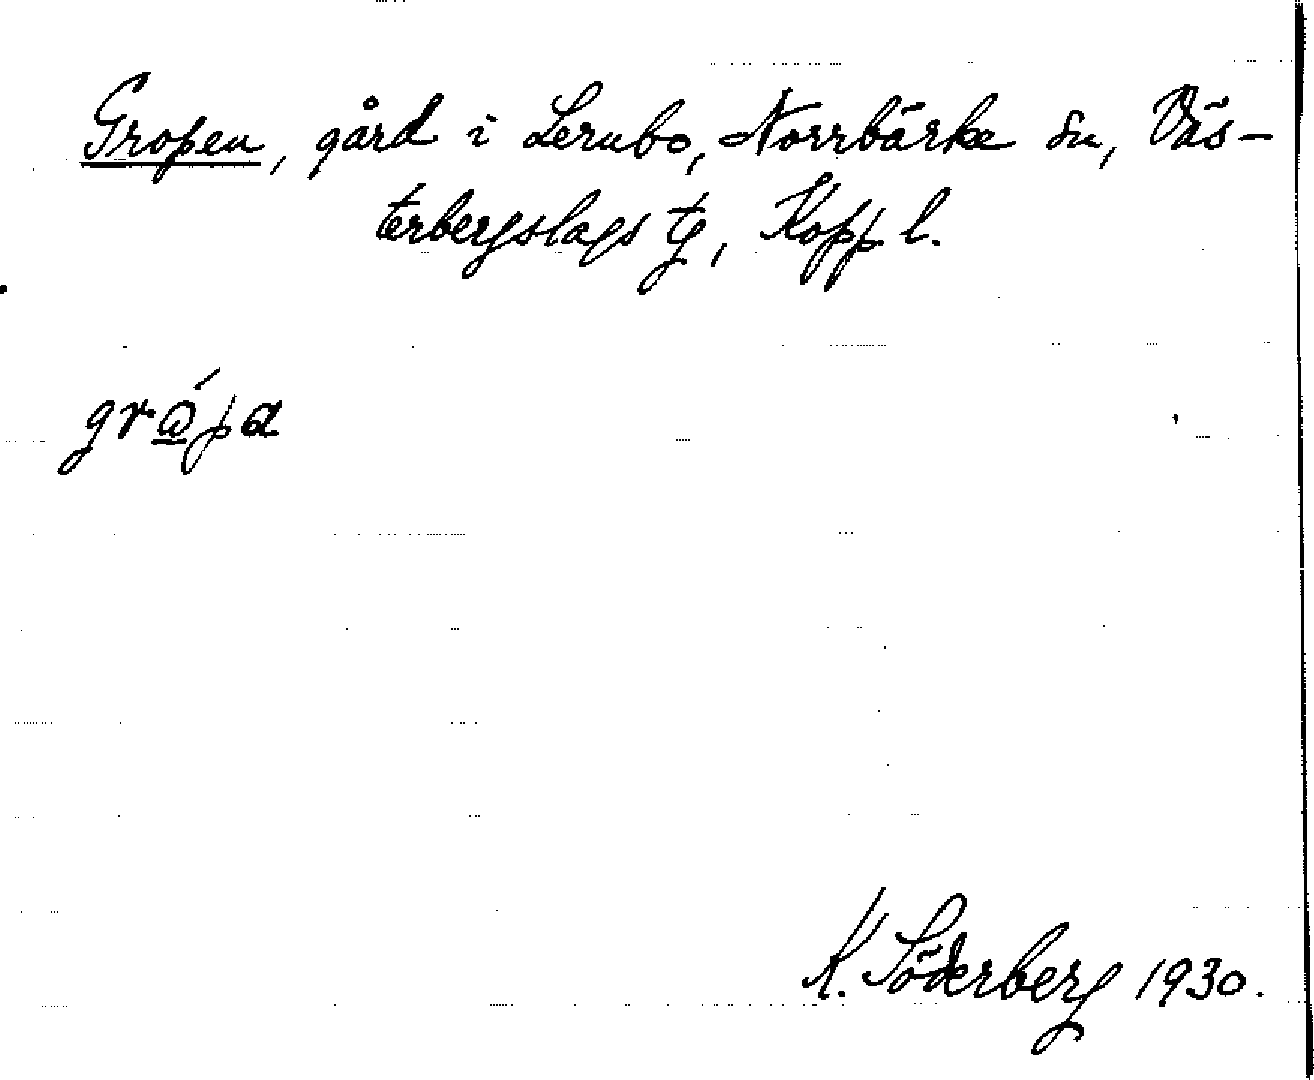 Gropen, gård i Lernbo, Norrbärke sn, Väs-
terbergslags tg, Kopp l.
grώ̲pa
K. Söderberg 1930.